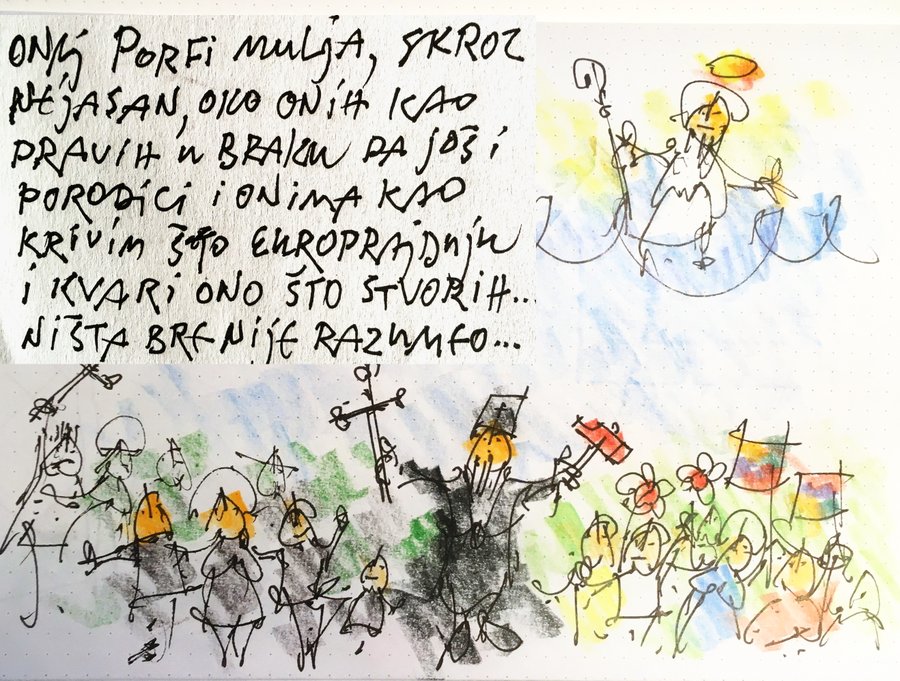 ONAJ PORFI MULJA, SKROZ
NEJASAN, OKO ONIH KAO
PRAVIH U BRAKU DA JOŠ I
PORODICI I ONIMA KAO
KRIVIM ŠTO EUROPRAJDUJU
I KVARI ONO ŠTO STVORIH...
NIŠTA BRE NIJE RAZUMEO...